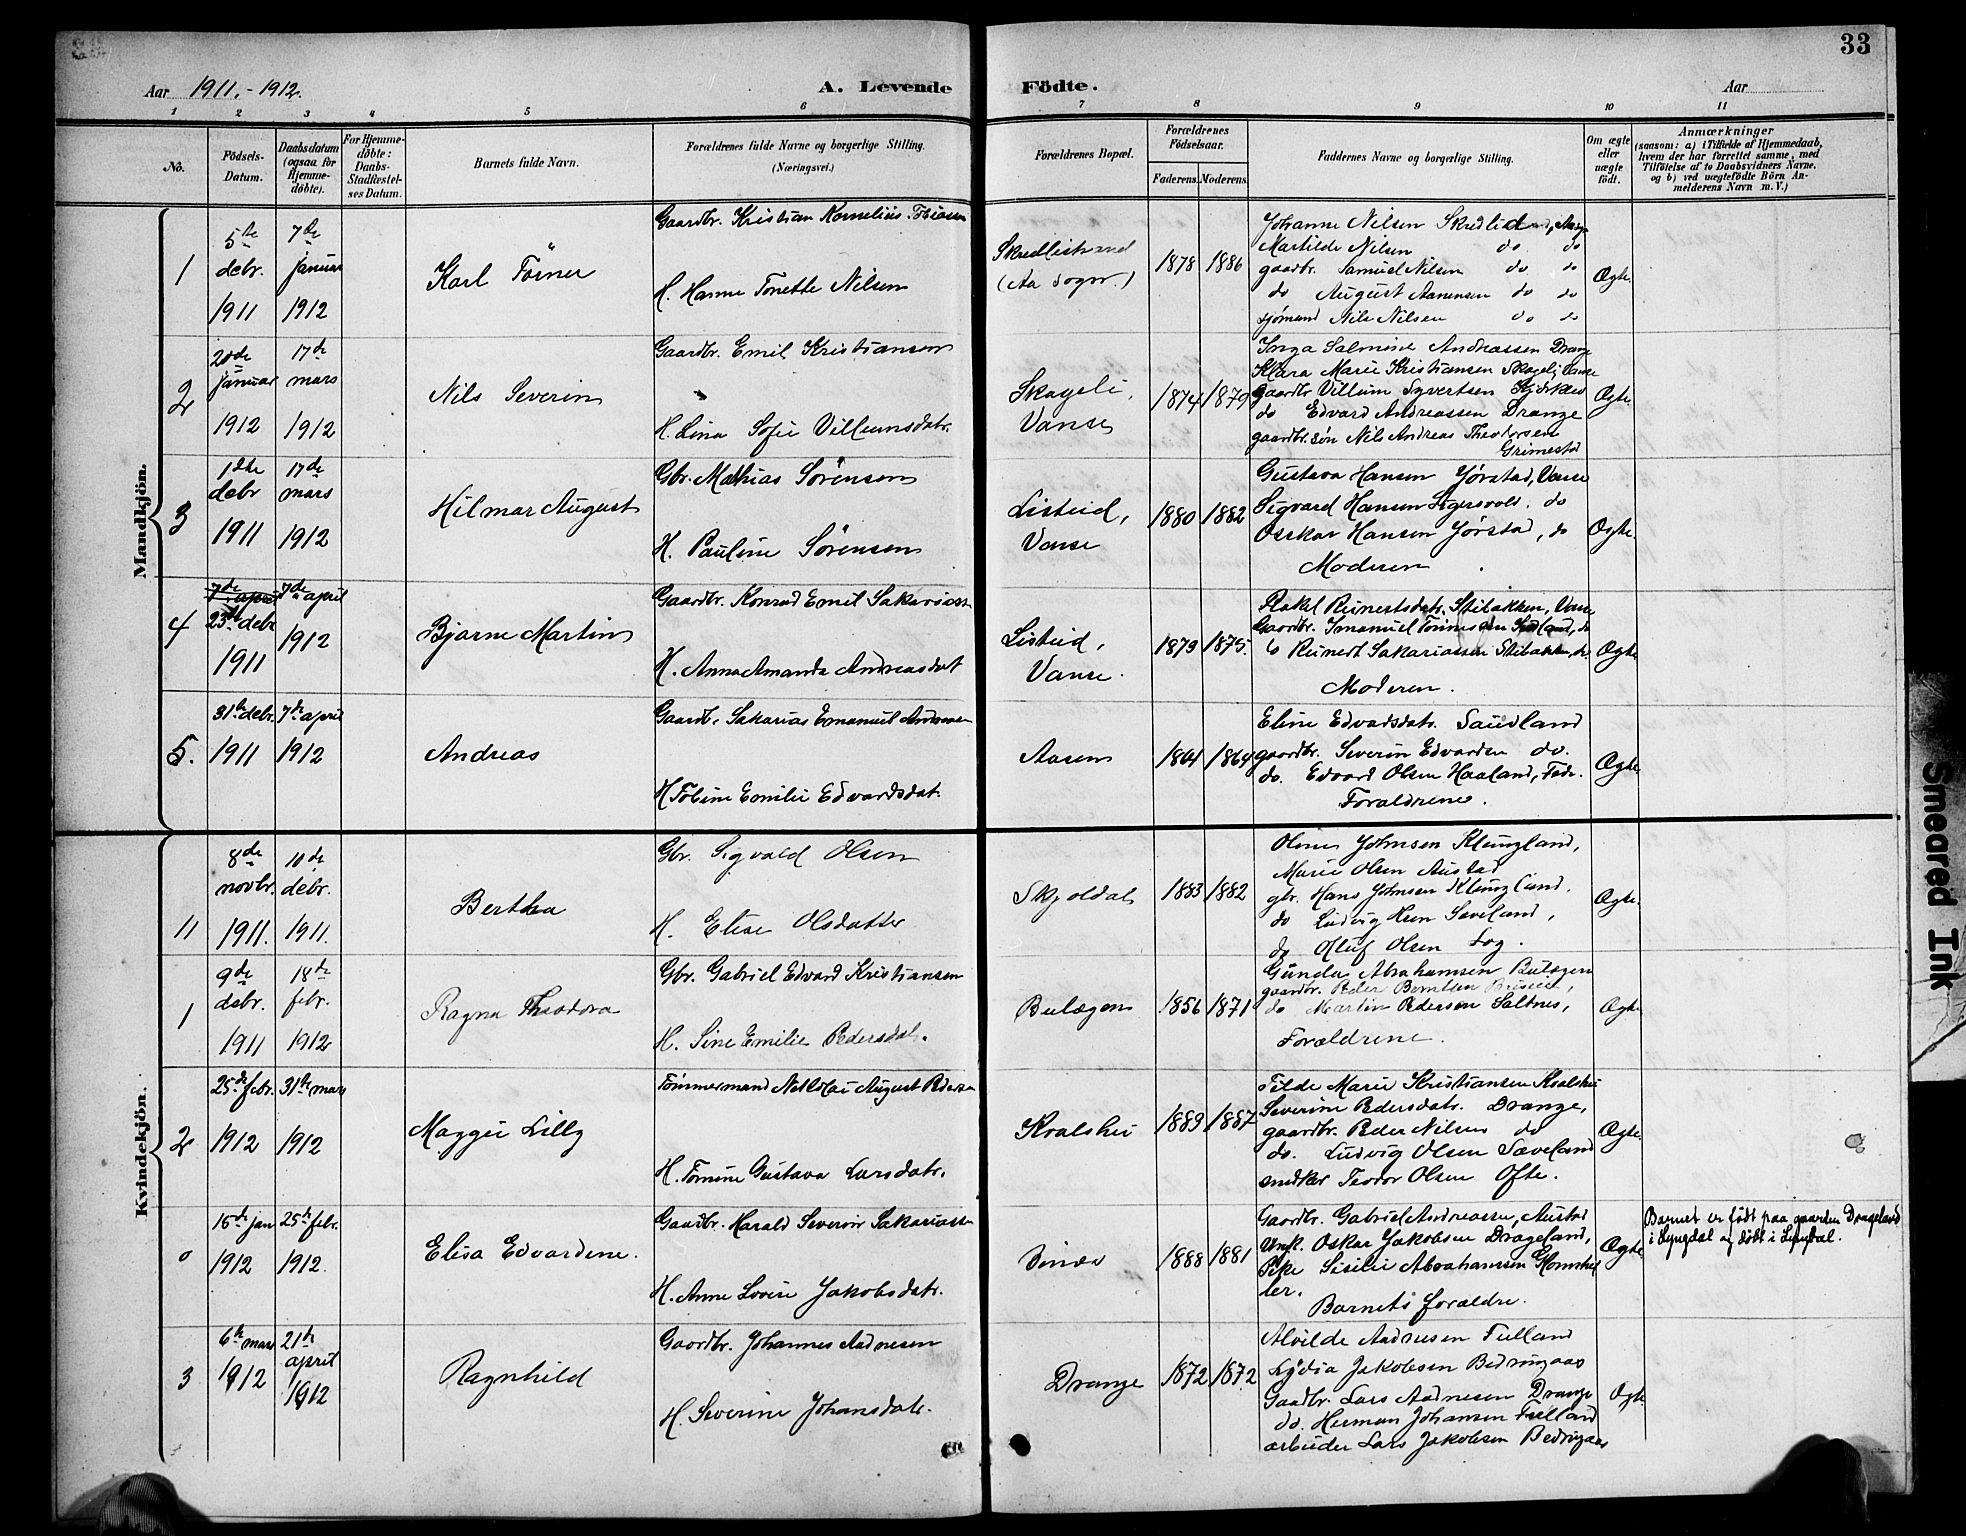 33
Aar 1911.-1912.
A. Levende Födte.
Aar
1 2 3 4 5 6 7 8 9 10 11
No.
Födsels-Datum.
Daabsdatum (ogsaa for Hjemme-döbte).
For Hjemme-döbte: Daabs-Stadfæstel-ses Datum.
Barnets fulde Navn.
Forældrenes fulde Navne og borgerlige Stilling. (Næringsvei.)
Forældrenes Bopæl.
Forældrenes Födselsaar.
Faderens. Moderens.
Faddernes Navne og borgerlige Stilling.
Om ægte eller uægte födt.
Anmærkninger
(saasom: a) i Tilfælde af Hjemmedaab, hvem der har forrettet samme, med Tilföielse af to Daabsvidners Navne, og b) ved uægtefödte Börn An-melderens Navn m. V.)
Mandkjön.
1
5te debr. 1911
7de januar 1912
Karl Törner
Gaardbr. Kristian Kornelius Tobiassen
H. Hanne Tonette Nilsen
Skredlistrand (Aa sogn.)
1878 1886
Johanne Nilsen
Martilde Nilsen do do
gaardbr. Samuel Nilsen do do
do August Aanensen do do
sjømand Nils Nilsen do do
Ægte.
2
20de januar 1912
17de mars 1912
Nils Severin
Gaardbr. Emil Kristiansen
H. Lina Sofie Villumsdatr.
Skageli, Vanse
1874 1879
Inga Salmine Andreassen Drange
Klara Marie Kristiansen Skageli Vanse
gaardbr Villum Syvertsen
do Edvard Andreassen Drange
gaardbr. søn Nils Andreas Theodorsen
Grimestad
Ægte.
3
1ste debr 1911
17de mars 1912
Hilmar August
Gbr. Mathias Sörensen
H. Pauline Sörensen
Listeid, Vanse
1880 1882
Gustava Hansen Jørstad, Vanse
Sigvard Hansen . do
Osskar Hansen Jørstad, do
Moderen
Ægte.
4
7de april
23de debr 1911
7de april 1912
Bjarne Martin
Gaardbr. Konrad Emil Sakariass
H. Anna Amanda Andreasdat
Listeid, Vanse.
1879 1875.
Rakel Reinertsdatr. Stibakken, Vanse
Gaardbr. Imanuel Tönnessen
Reinert Sakariassen Stibakken, do
Moderen.
Ægte
5.
31te debr. 1911
7de april 1912
Andreas
Gaardb. Sakarias Emanuel
H. Tobine Emilie Edvardsdat.
Aasen
1864
Eline Edvardsdatr. Saudland
gaardbr. Severin Edvardsen do.
do. Edvard Olsen Haaland, Feda.
Forældrene.
Ægte
Kvindekjön.
11
8de novbr. 1911.
10de debr. 1911.
Bertha
Gbr. Sigvald Olsen
H. Elise Olsdatter
Skjoldal
1883 1882
Johnsen Klungland,
Marie Olsen Austad
gbr. Hans Johnsen Klungland.
do Ludvig Säveland,
do Oluf Olsen Log.
Ægte.
1
9de debr. 1911
18de febr. 1912
Ragna Theodora
Gbr. Gabriel Edvard Kristiansen
H. Sine Emilie Pedersdatr.
Bulægen
1856 1871
Gunda Abrahamsen Bulægen
gaardbr. Peder Berntsen
do Martin Pedersen Saltnes,
Forældrene.
Ægte
2
25de febr. 1912
31te mars 1912
Maggie Lilly
Tömmermand Nikolai August Pedersen
H. Tomine Gustava Larsdatr.
Kvalshei
1889 1887
Tilde Marie Kristiansen Kvalshei
Severine Pedersdatr. Drange,
gaardbr. Peder Nilsen do
do. Ludvig Olsen Sæveland
snedker Teodor Olsen Ofte.
Ægte.
0
15de jan 1912
25de febr. 1912.
Elisa Edvardene.
Gaardbr. Harald Severin Sakariass
H. Anne Lovise Jakobsdatr.
1888 1881
Gaardbr. Gabriel Andreassen, Austad
Unk. Oskar Jakobsen Drageland,
Pike Sisilie Abrahamsen
Barnets forældre.
Ægte.
Barnet er född paa gaarden Drageland
i Lyngdal og döbt i Lyngdal.
3
6te mars 1912
21de april 1912
Ragnhild
Gaardbr. Johannes Aadnesen
H. Severine Johansdatr.
Drange
1872 1872
Alvilde Aadnesen Fulland
Lydia Jakobsen
Gaardbr. Lars Aadnesen Drange
do. Herman Johansen Fulland
arbeider Lars Jakobsen
Ægte
Smeared Ink